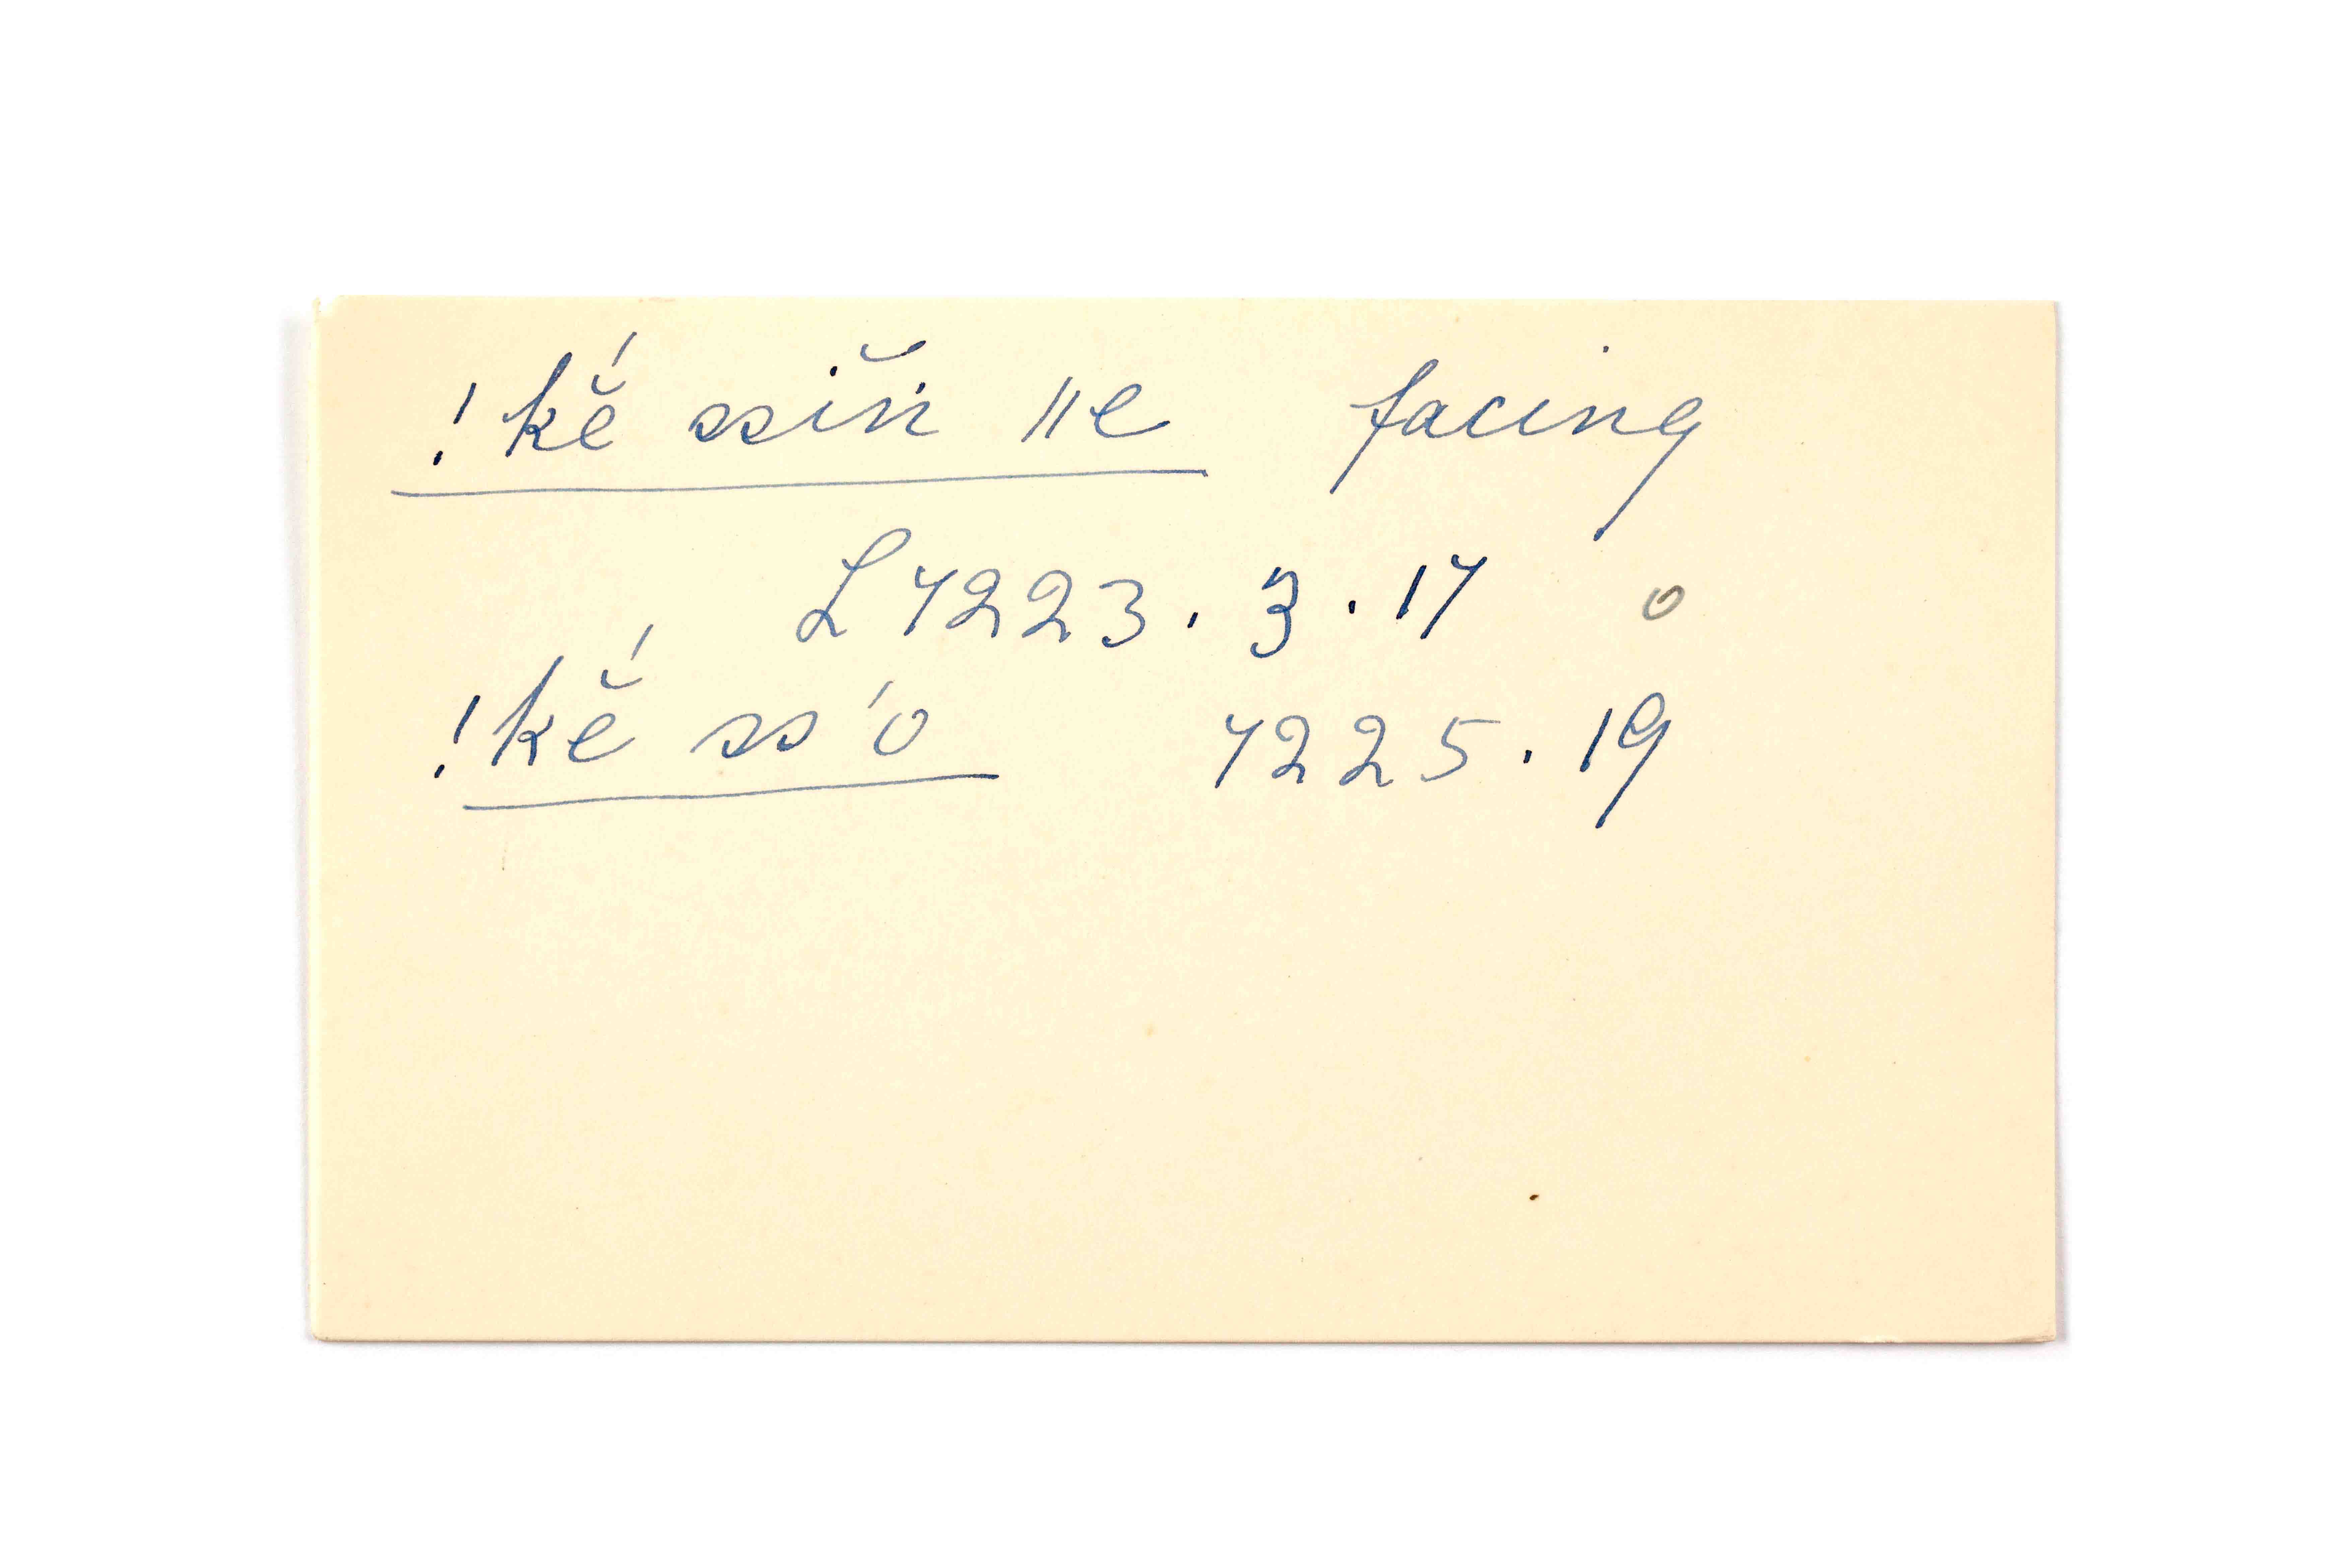 !kĕ́ ssĭṅ ǁe facing
L7223.3.17 o
!kĕ́ ss'o 7225.19